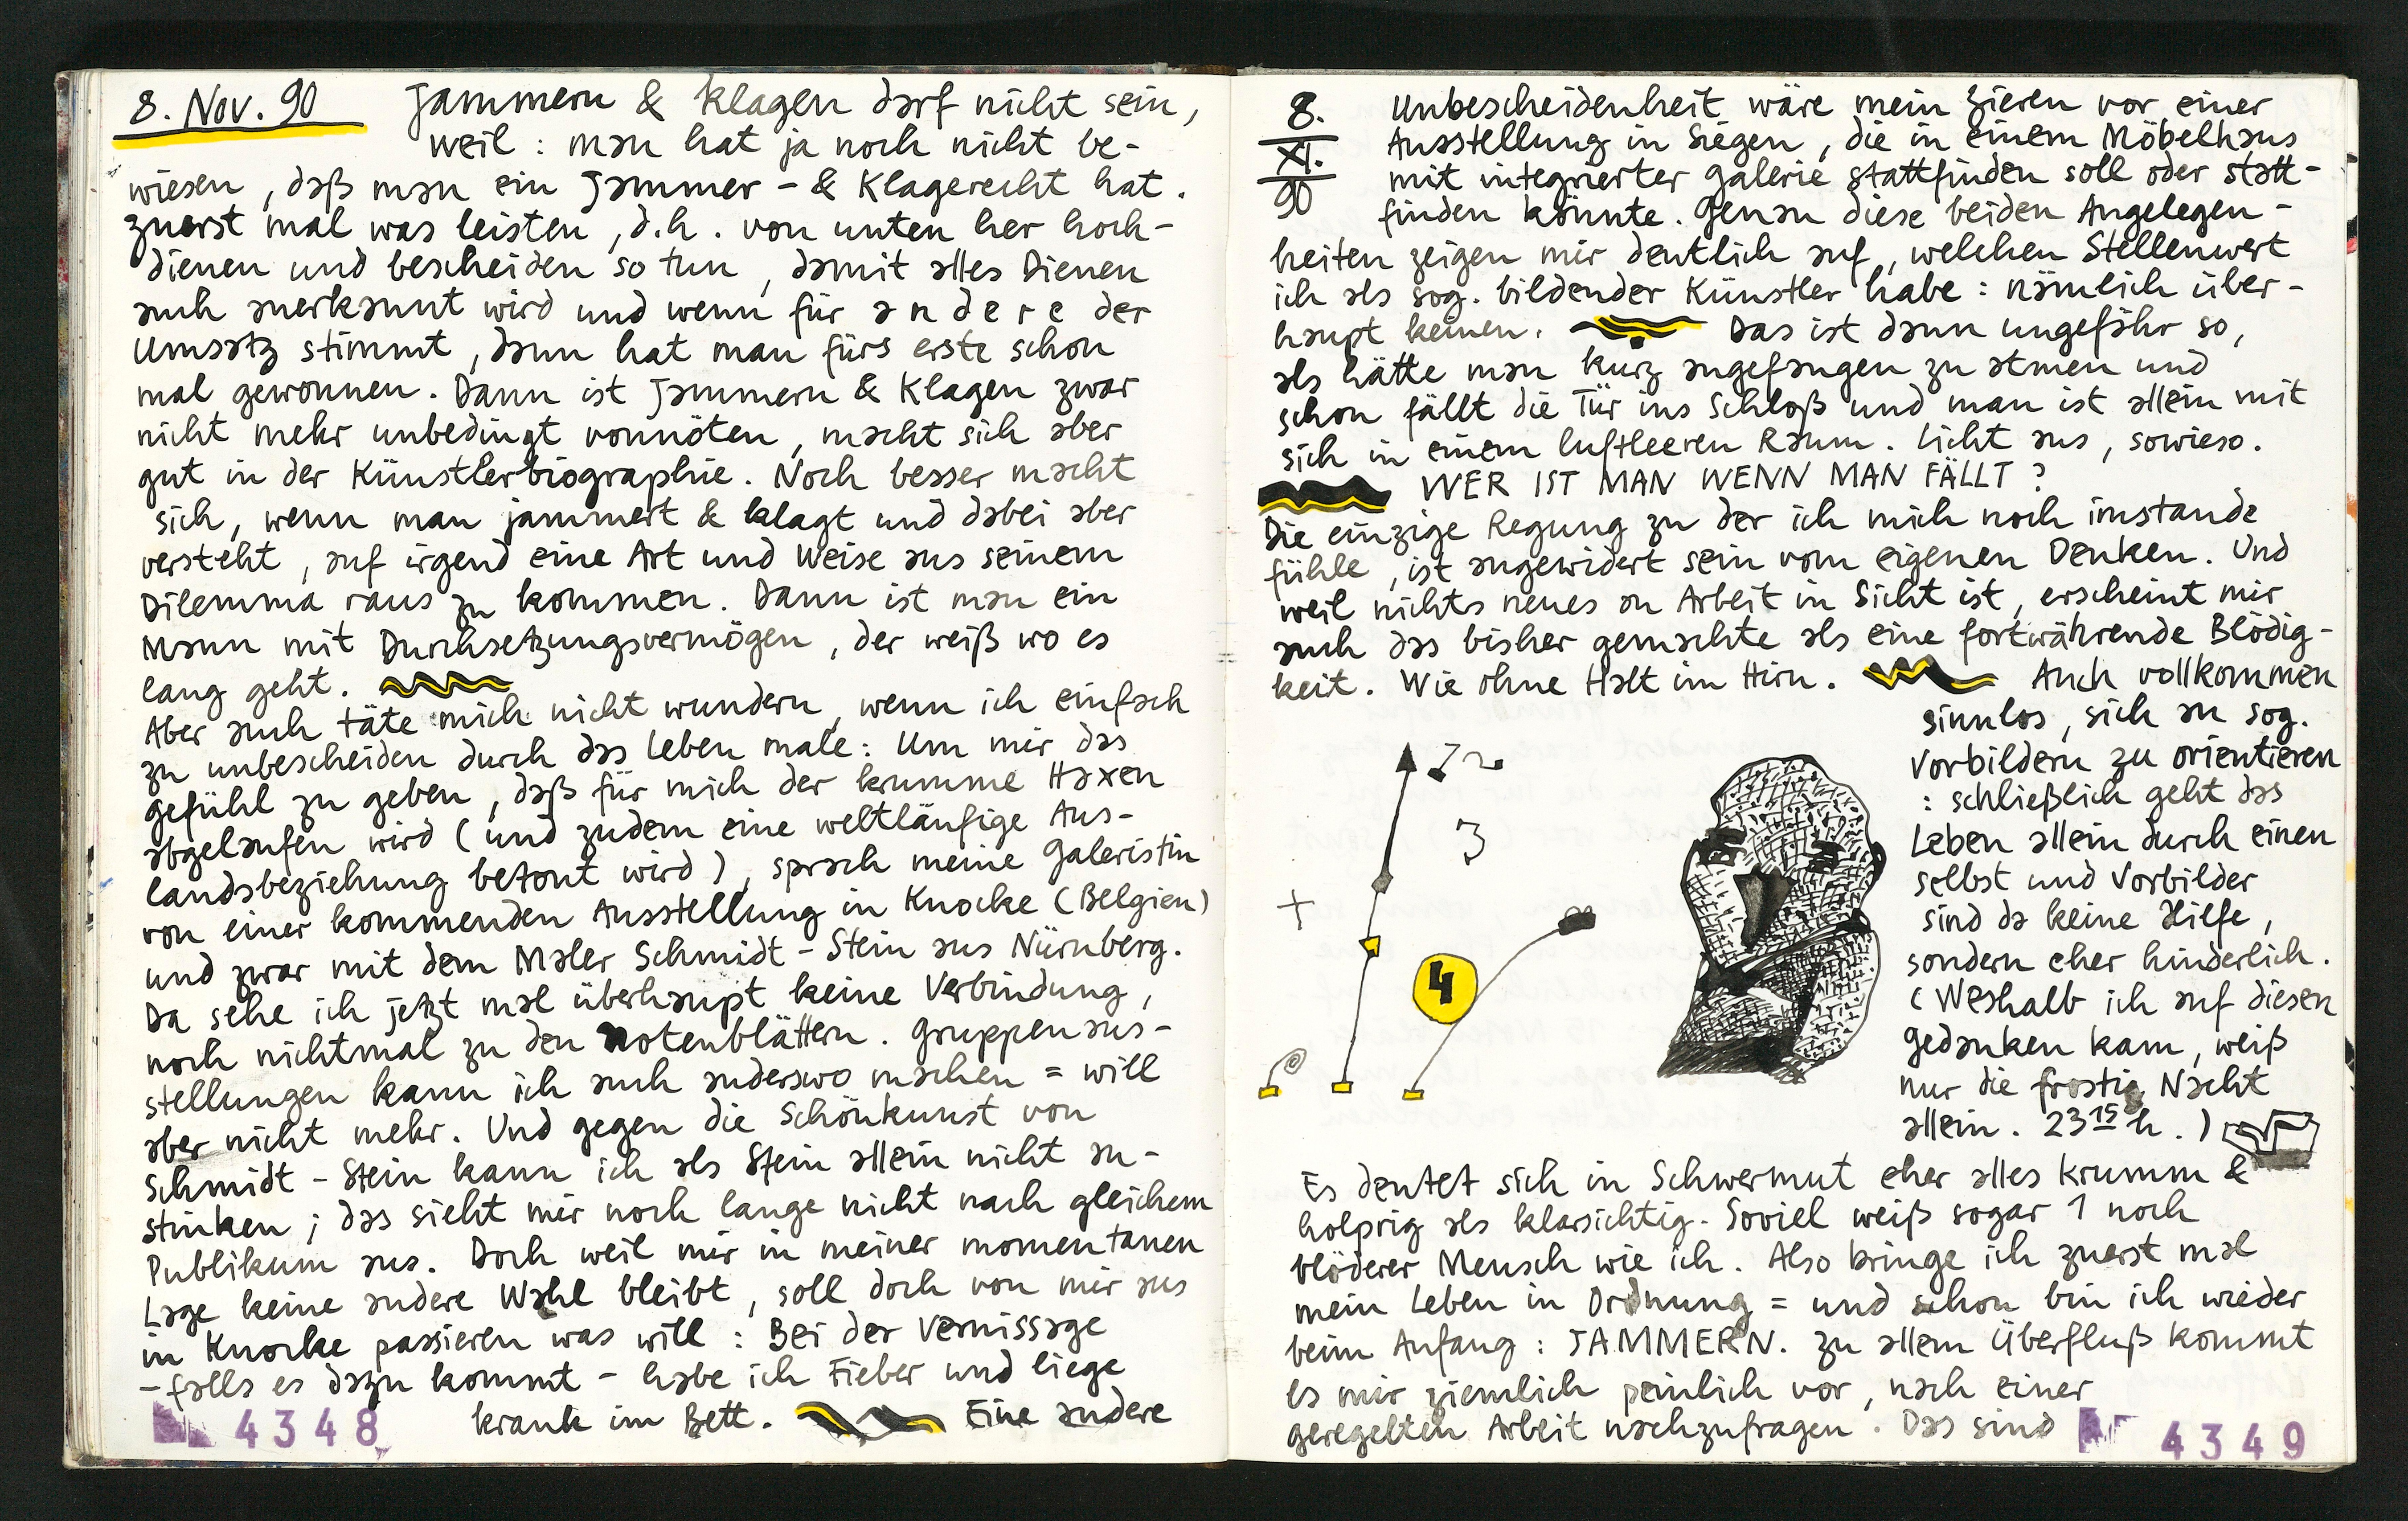 8. Nov. 90 Jammern & Klagen darf nicht sein,
weil : man hat ja noch nicht be-
wiesen, daß man ein Jammer - & Klagerecht hat.
zuerst mal was leisten, d.h. von unten her hoch-
dienen und bescheiden so tun, damit alles Dienen
auch anerkannt wird und wenn für andere der
Umsatz stimmt, dann hat man fürs erste schon
mal gewonnen. Dann ist Jammern & Klagen zwar
nicht mehr unbedingt vonnöten, macht sich aber
gut in der Künstlerbiographie. Noch besser macht
sich, wenn man jammert & klagt und dabei aber
versteht, auf irgend eine Art und Weise aus seinem
Dilemma raus zu kommen. Dann ist man ein
Mann mit Durchsetzungsvermögen, der weiß wo es
lang geht.
Aber auch täte mich nicht wundern, wenn ich einfach
zu unbescheiden durch das Leben male: Um mir das
gefühl zu geben, daß für mich der krumme Haxen
abgelaufen wird (und zudem eine weltläufige Aus-
landsbeziehung betont wird), sprach meine Galeristin
von einer kommenden Ausstellung in Knocke (Belgien)
und zwar mit dem Maler Schmidt - Stein aus Nürnberg.
Da sehe ich jetzt mal überhaupt keine Verbindung,
noch nichtmal zu den Notenblättern. Gruppenaus-
stellungen kann ich auch anderswo machen = will
aber nicht mehr. Und gegen die Schönkunst von
Schmidt - Stein kann ich als Stein allein nicht an-
stinken ; das sieht mir noch lange nicht nach gleichem
Publikum aus. Doch weil mir in meiner momentanen
Lage keine andere Wahl bleibt, soll doch von mir aus
in Knocke passieren was will : Bei der Vernissage
- falls es dazu kommt - habe ich Fieber und liege
krank im Bett. Eine andere
4348
8. XI. 90
Unbescheidenheit wäre mein Zieren vor einer
Ausstellung in Siegen, die in einem Möbelhaus
mit integrierter Galerie stattfinden soll oder statt-
finden könnte. Genau diese beiden Angelegen-
heiten zeigen mir deutlich auf, welchen Stellenwert
ich als sog. bildender Künstler habe : nämlich über-
haupt keinen. Das ist dann ungefähr so,
als hätte man kurz angefangen zu atmen und
schon fällt die Tür ins Schloß und man ist allein mit
sich in einem luftleeren Raum. Licht aus, sowieso.
WER IST MAN WENN MAN FÄLLT ?
Die einzige Regung zu der ich mich noch imstande
fühle, ist angewidert sein vom eigenen Denken. Und
weil nichts neues an Arbeit in Sicht ist, erscheint mir
auch das bisher gemachte als eine fortwährende Blödig-
keit. Wie ohne Halt im Hirn. Auch vollkommen
sinnlos, sich an sog.
Vorbildern zu orientieren
: schließlich geht das
Leben allein durch einen
selbst und Vorbilder
sind da keine Hilfe,
sondern eher hinderlich.
(Weshalb ich auf diesen
Gedanken kam, weiß
nur die frostig Nacht
allein. 23 15 h.)
3
+
4
Es deutet sich in Schwermut eher alles krumm &
holprig als klarsichtig. Soviel weiß sogar 1 noch
blöderer Mensch wie ich. Also bringe ich zuerst mal
mein Leben in Ordnung = und schon bin ich wieder
beim Anfang : JAMMERN. Zu allem Überfluß kommt
es mir ziemlich peinlich vor, nach einer
geregelten Arbeit nachzufragen. Das sind
4349